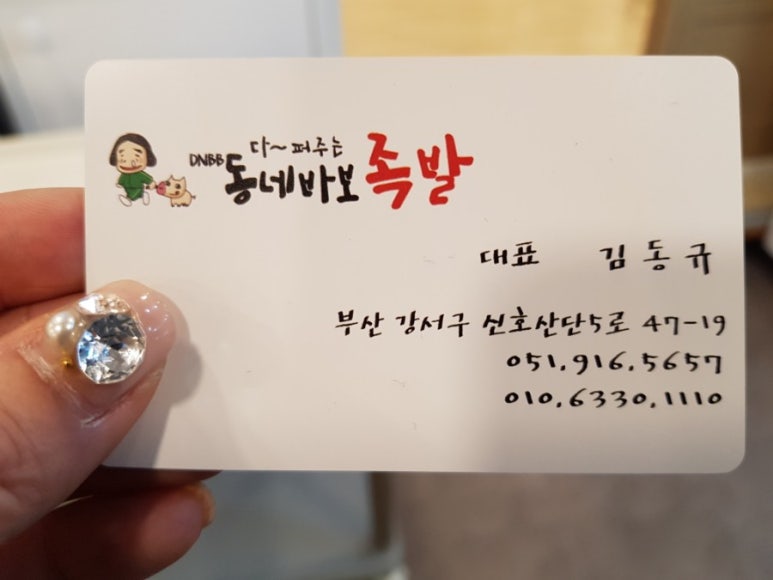 다~퍼주는
DNBB 동네바보 족발
대표 김동규
부산 강서구 신호산단5로 47-19
051.916.5657
010.6330.1110